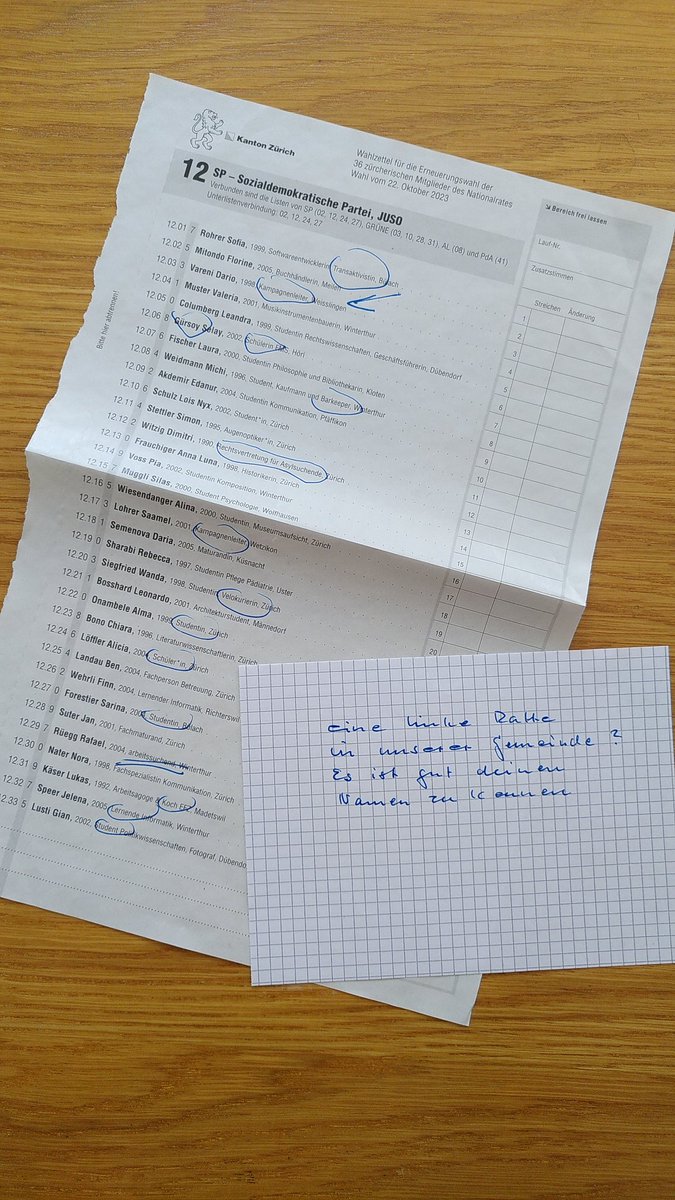 Kanton Zürich
Wahlzettel für die Erneuerungswahl der
36 zürcherischen Mitglieder des Nationalrates
Wahl vom 22. Oktober 2023
12 SP – Sozialdemokratische Partei, JUSO
Verbunden sind die Listen von SP (02, 12, 24, 27), GRÜNE (03, 10, 28, 31), AL (08) und PdA (41)
Unterlistenverbindung: 02, 12, 24, 27
Bereich frei lassen
Lauf-Nr.
Zusatzstimmen
Streichen Änderung
Bitte hier abtrennen!
12.01 7 Rohrer Sofia, 1999, Softwareentwicklerin, Transaktivistin, Bülach
12.02 5 Mitondo Florine, 2005, Buchhändlerin, Meilen
12.03 3 Vareni Dario, 1998, Kampagnenleiter, Weisslingen
12.04 1 Muster Valeria, 2001, Musikinstrumentenbauerin, Winterthur
12.05 0 Columberg Leandra, 1999, Studentin Rechtswissenschaften, Geschäftsführerin, Dübendorf
12.06 8 Gürsoy Selay, 2002, Schülerin FMS, Höri
12.07 6 Fischer Laura, 2000, Studentin Philosophie und Bibliothekarin, Kloten
12.08 4 Weidmann Michi, 1996, Student, Kaufmann und Barkeeper, Winterthur
12.09 2 Akdemir Edanur, 2004, Studentin Kommunikation, Pfäffikon
12.10 6 Schulz Lois Nyx, 2002, Student*in, Zürich
12.11 4 Stettler Simon, 1995, Augenoptiker*in, Zürich
12.12 2 Witzig Dimitri, 1990, Rechtsvertretung für Asylsuchende, Zürich
12.13 0 Frauchiger Anna Luna, 1998, Historikerin, Zürich
12.14 9 Voss Pia, 2002, Studentin Komposition, Winterthur
12.15 7 Muggli Silas, 2000, Student Psychologie, Wolfhausen
12.16 5 Wiesendanger Alina, 2000, Studentin, Museumsaufsicht, Zürich
12.17 3 Lohrer Saamel, 2001, Kampagnenleiter, Wetzikon
12.18 1 Semenova Daria, 2005, Maturandin, Küsnacht
12.19 0 Sharabi Rebecca, 1997, Studentin Pflege Pädiatrie, Uster
12.20 3 Siegfried Wanda, 1998, Studentin, Velokurierin, Zürich
12.21 1 Bosshard Leonardo, 2001, Architekturstudent, Männedorf
12.22 0 Onambele Alma, 1999, Studentin, Zürich
12.23 8 Bono Chiara, 1996, Literaturwissenschaftlerin, Zürich
12.24 6 Löffler Alicia, 2004, Schüler*in, Zürich
12.25 4 Landau Ben, 2004, Fachperson Betreuung, Zürich
12.26 2 Wehrli Finn, 2004, Lernender Informatik, Richterswil
12.27 0 Forestier Sarina, Studentin, Bülach
12.28 9 Suter Jan, 2001, Fachmaturand, Zürich
12.29 7 Rüegg Rafael, 2004, arbeitssuchend, Winterthur
12.30 0 Nater Nora, 1998, Fachspezialistin Kommunikation, Zürich
12.31 9 Käser Lukas, 1992, Arbeitsagoge & Koch EFZ, Madetswil
12.32 7 Speer Jelena, 2005, Lernende Informatik, Winterthur
12.33 5 Lusti Gian, 2002, Student Politikwissenschaften, Fotograf, Dübendo
1
2
3
4
5
6
7
8
9
10
11
12
13
14
15
16
17
18
19
20
eine linke Ratte
in unserer Gemeinde?
Es ist gut deinen
Namen zu kennen